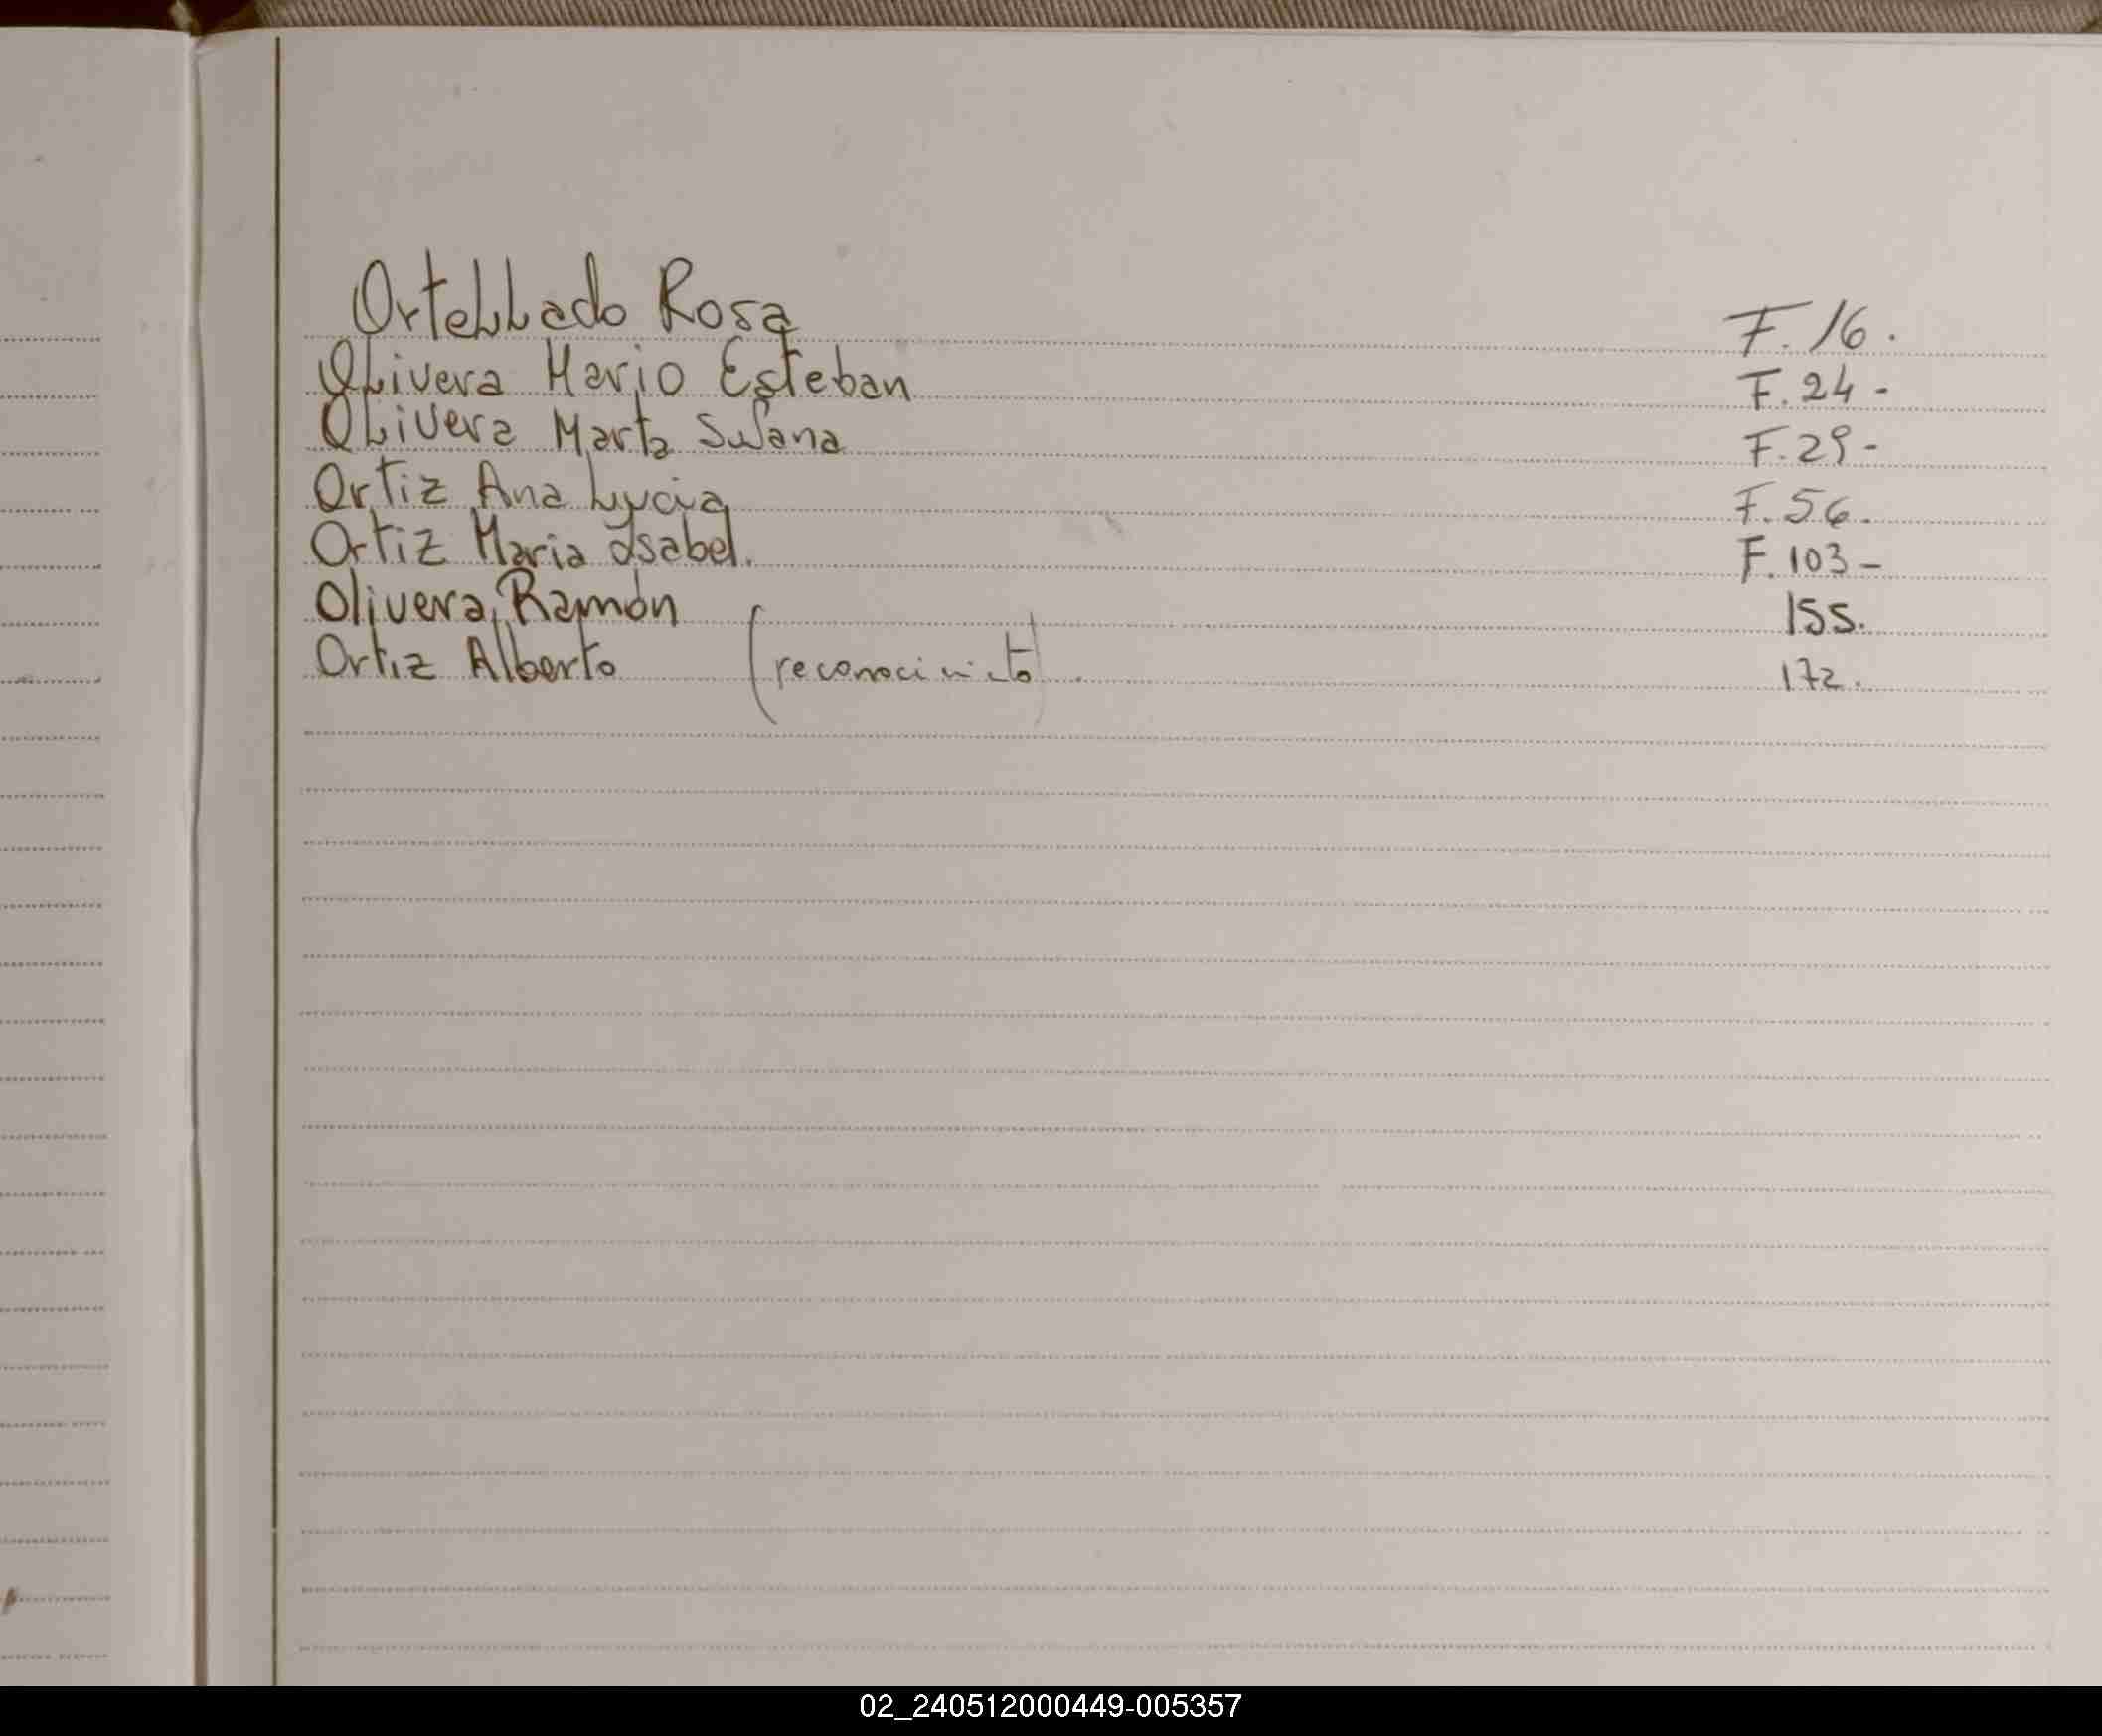 Ortellado Rosa F. 16.
Olivera Mario Esteban F. 24 -
Olivera Marta Susana F. 29 -
Ortiz Ana Lucia F. 56.
Ortiz Maria Isabel. F. 103 -
Olivera, Ramón 155.
Ortiz Alberto (reconocimiento). 172.
02_240512000449-005357